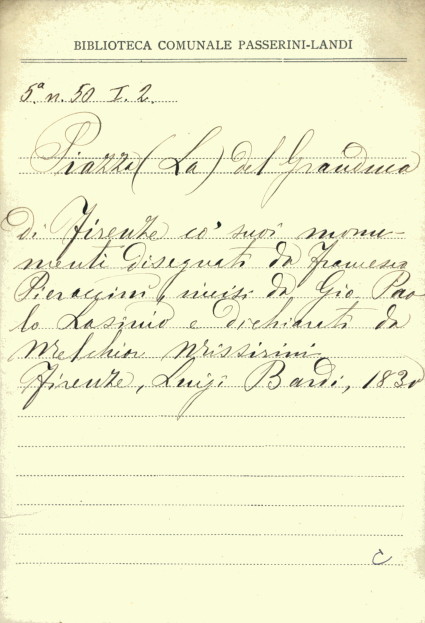 BIBLIOTECA COMUNALE PASSERINI-LANDI
5ª n. 50 I. 2.
Piazza (La) del Granduca
di Firenze co' suoi monu-
menti disegnati da Francesco
Pieraccini, incisi da Gio Pao
lo Lasinio e dichiarati da
Melchior Missirini
Firenze, Luigi Bardi, 1830
C